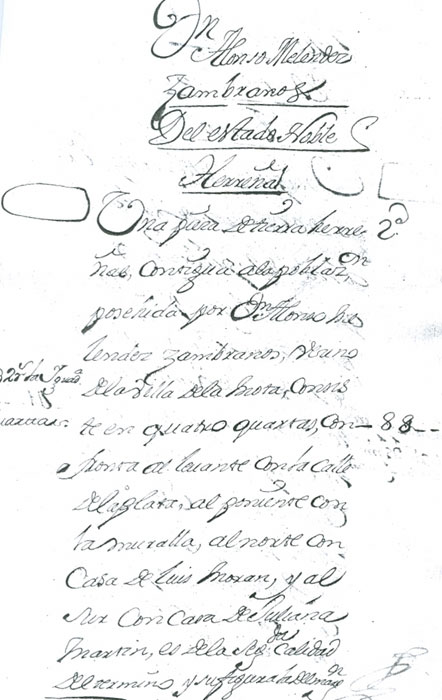 Dn
Alonso Melendez
Zambranos
Del estado Noble
Herreñal
Una pieza de tierra herre- 2ª
ñal, contigua a la poblazon
posehida por Dn Alonso Me
lendez Zambranos, vecino
de la villa de la Mota, Consis
te en quatro quartas, Con- 88-
fronta al levante con la Calle
de la plata, al poniente con
la muralla, al norte con
Casa de Luis Moran, y al
Sur Con Casa de Juliana
Martin, es de la segda Calidad
del termino y su figura la del margn